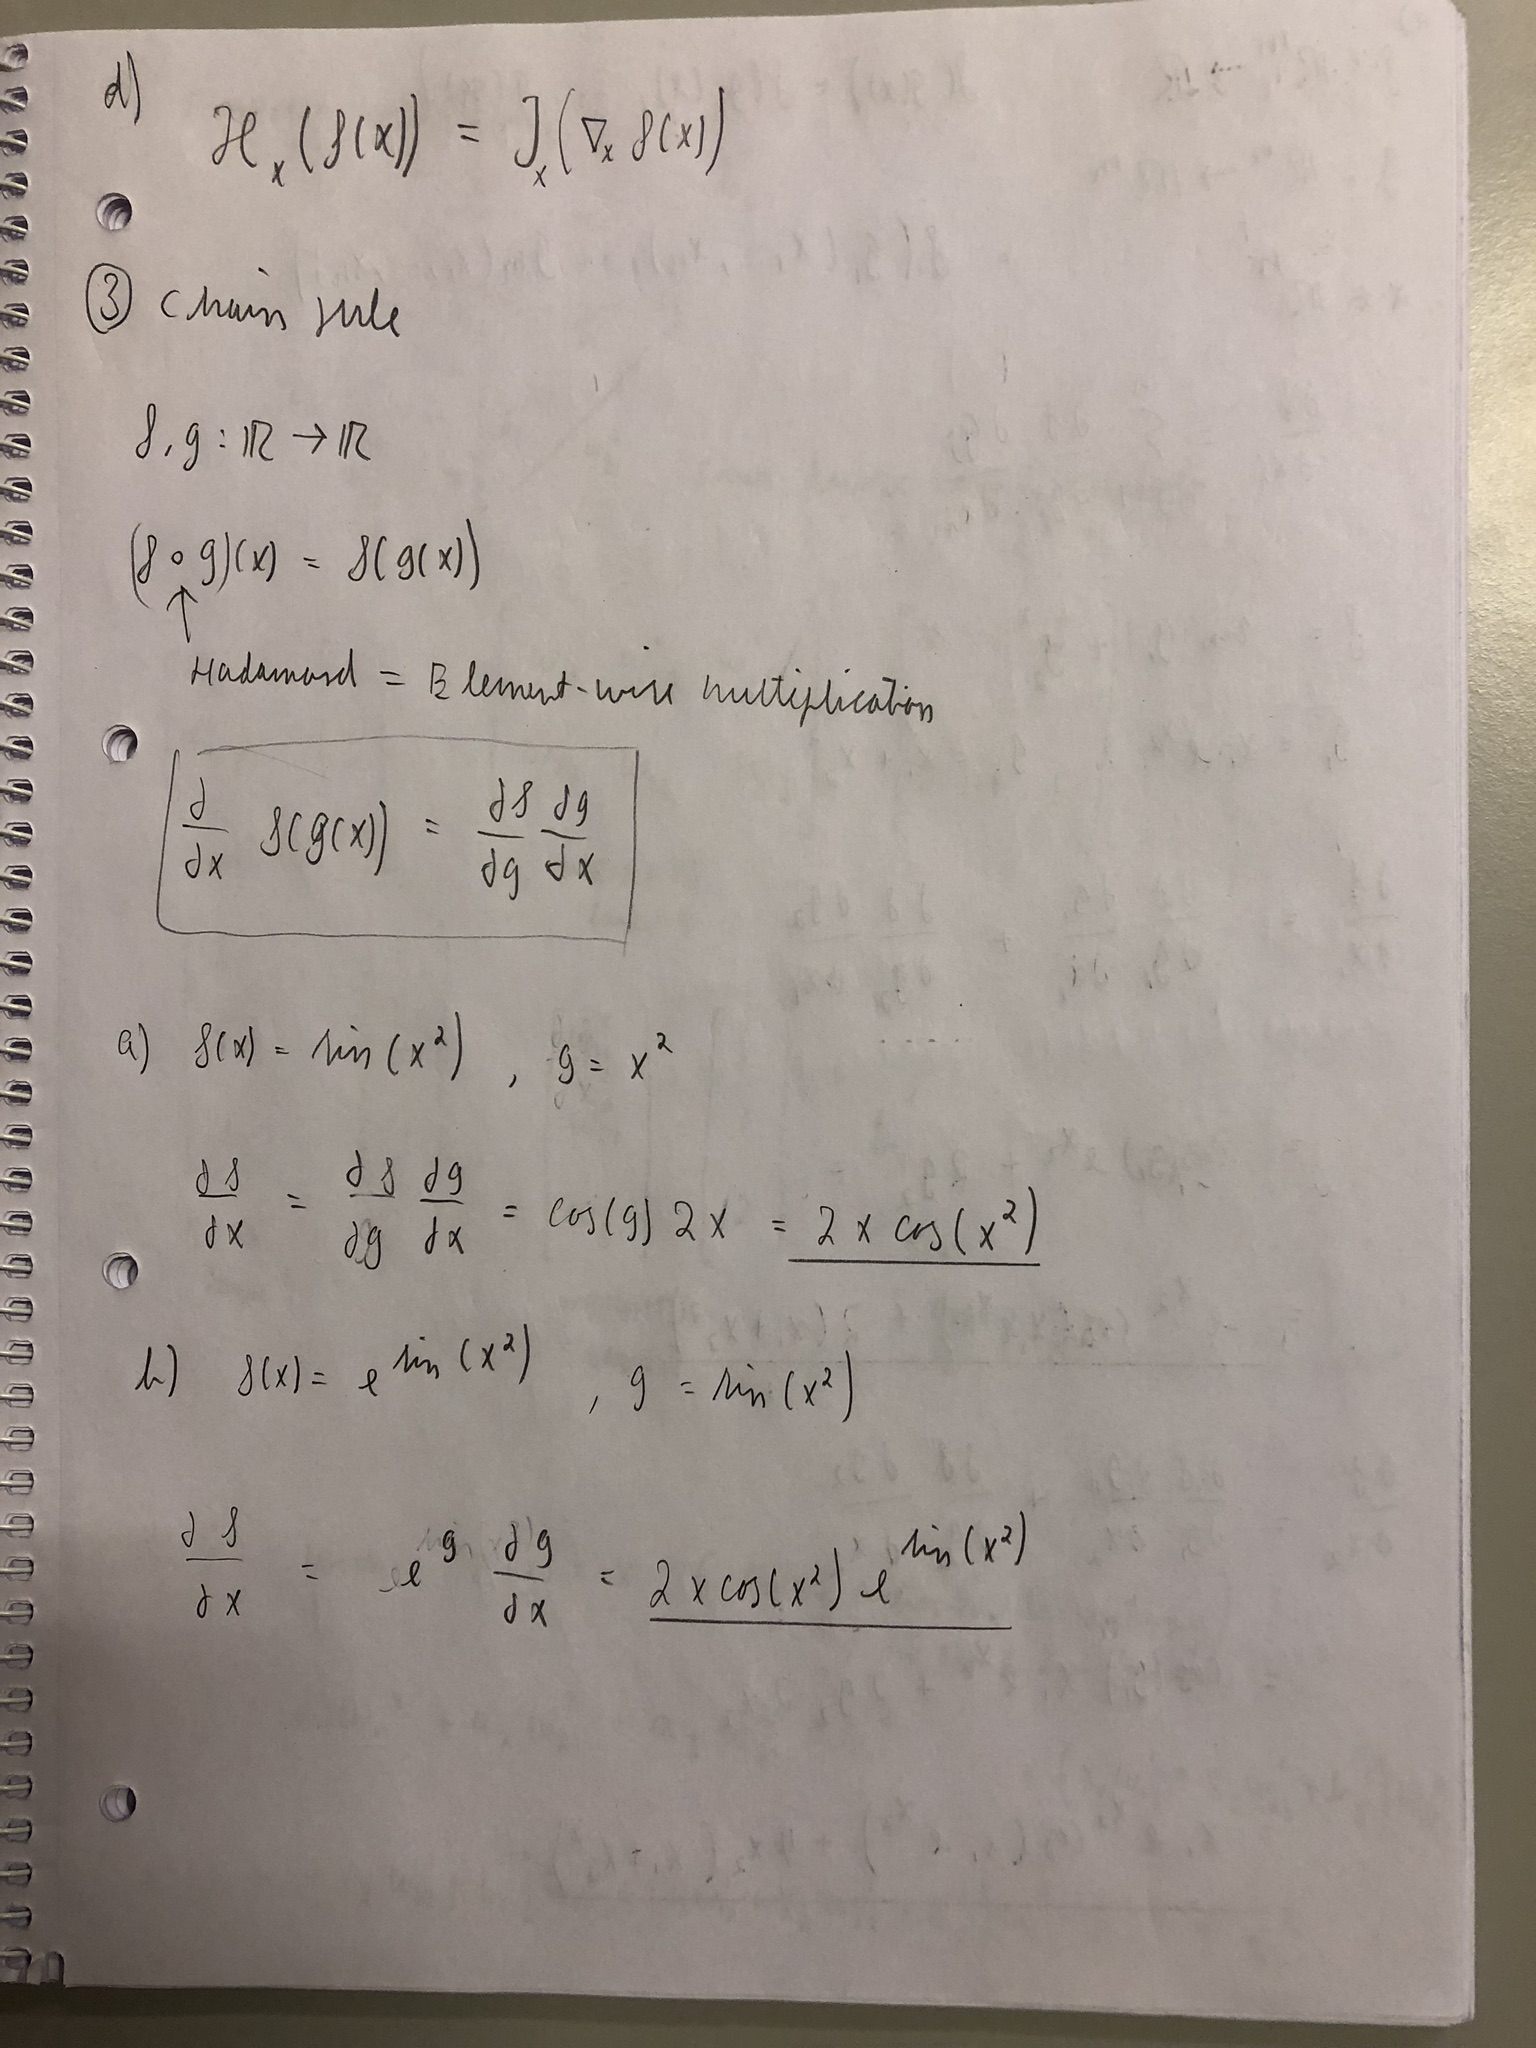 d) ℋₓ(f(x)) = Jₓ(∇ₓ f(x))
③ Chain rule
f, g : ℝ → ℝ
(f ∘ g)(x) = f(g(x))
↑
Hadamard = Element-wise multiplication
∂/∂x f(g(x)) = ∂f/∂g ∂g/∂x
a) f(x) = sin(x²), g = x²
∂f/∂x = ∂f/∂g ∂g/∂x = cos(g) 2x = 2x cos(x²)
b) f(x) = e^sin(x²), g = sin(x²)
∂f/∂x = e^g ∂g/∂x = 2x cos(x²) e^sin(x²)